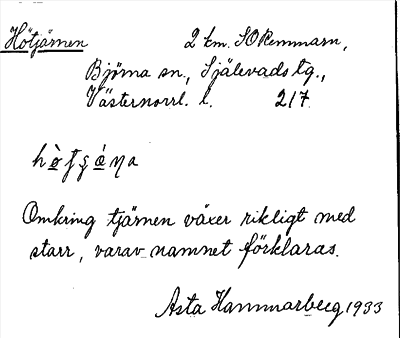 Hötjärnen 2 km. SO Remmarn,
Björna sn., Själevads tg.,
Västernorrl. l. 217.
Omkring tjärnen växer rikligt med
starr, varav namnet förklaras.
Asta Hammarberg 1933